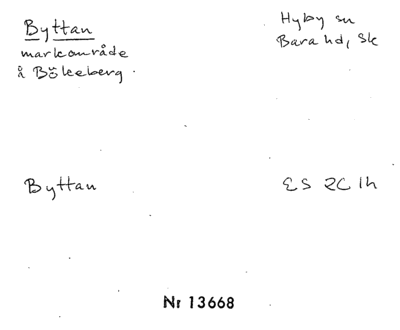 Byttan
markområde
å Bökeberg.
Hyby sn
Bara hd, Sk
Byttan
ES 2C 1h
Nr 13668